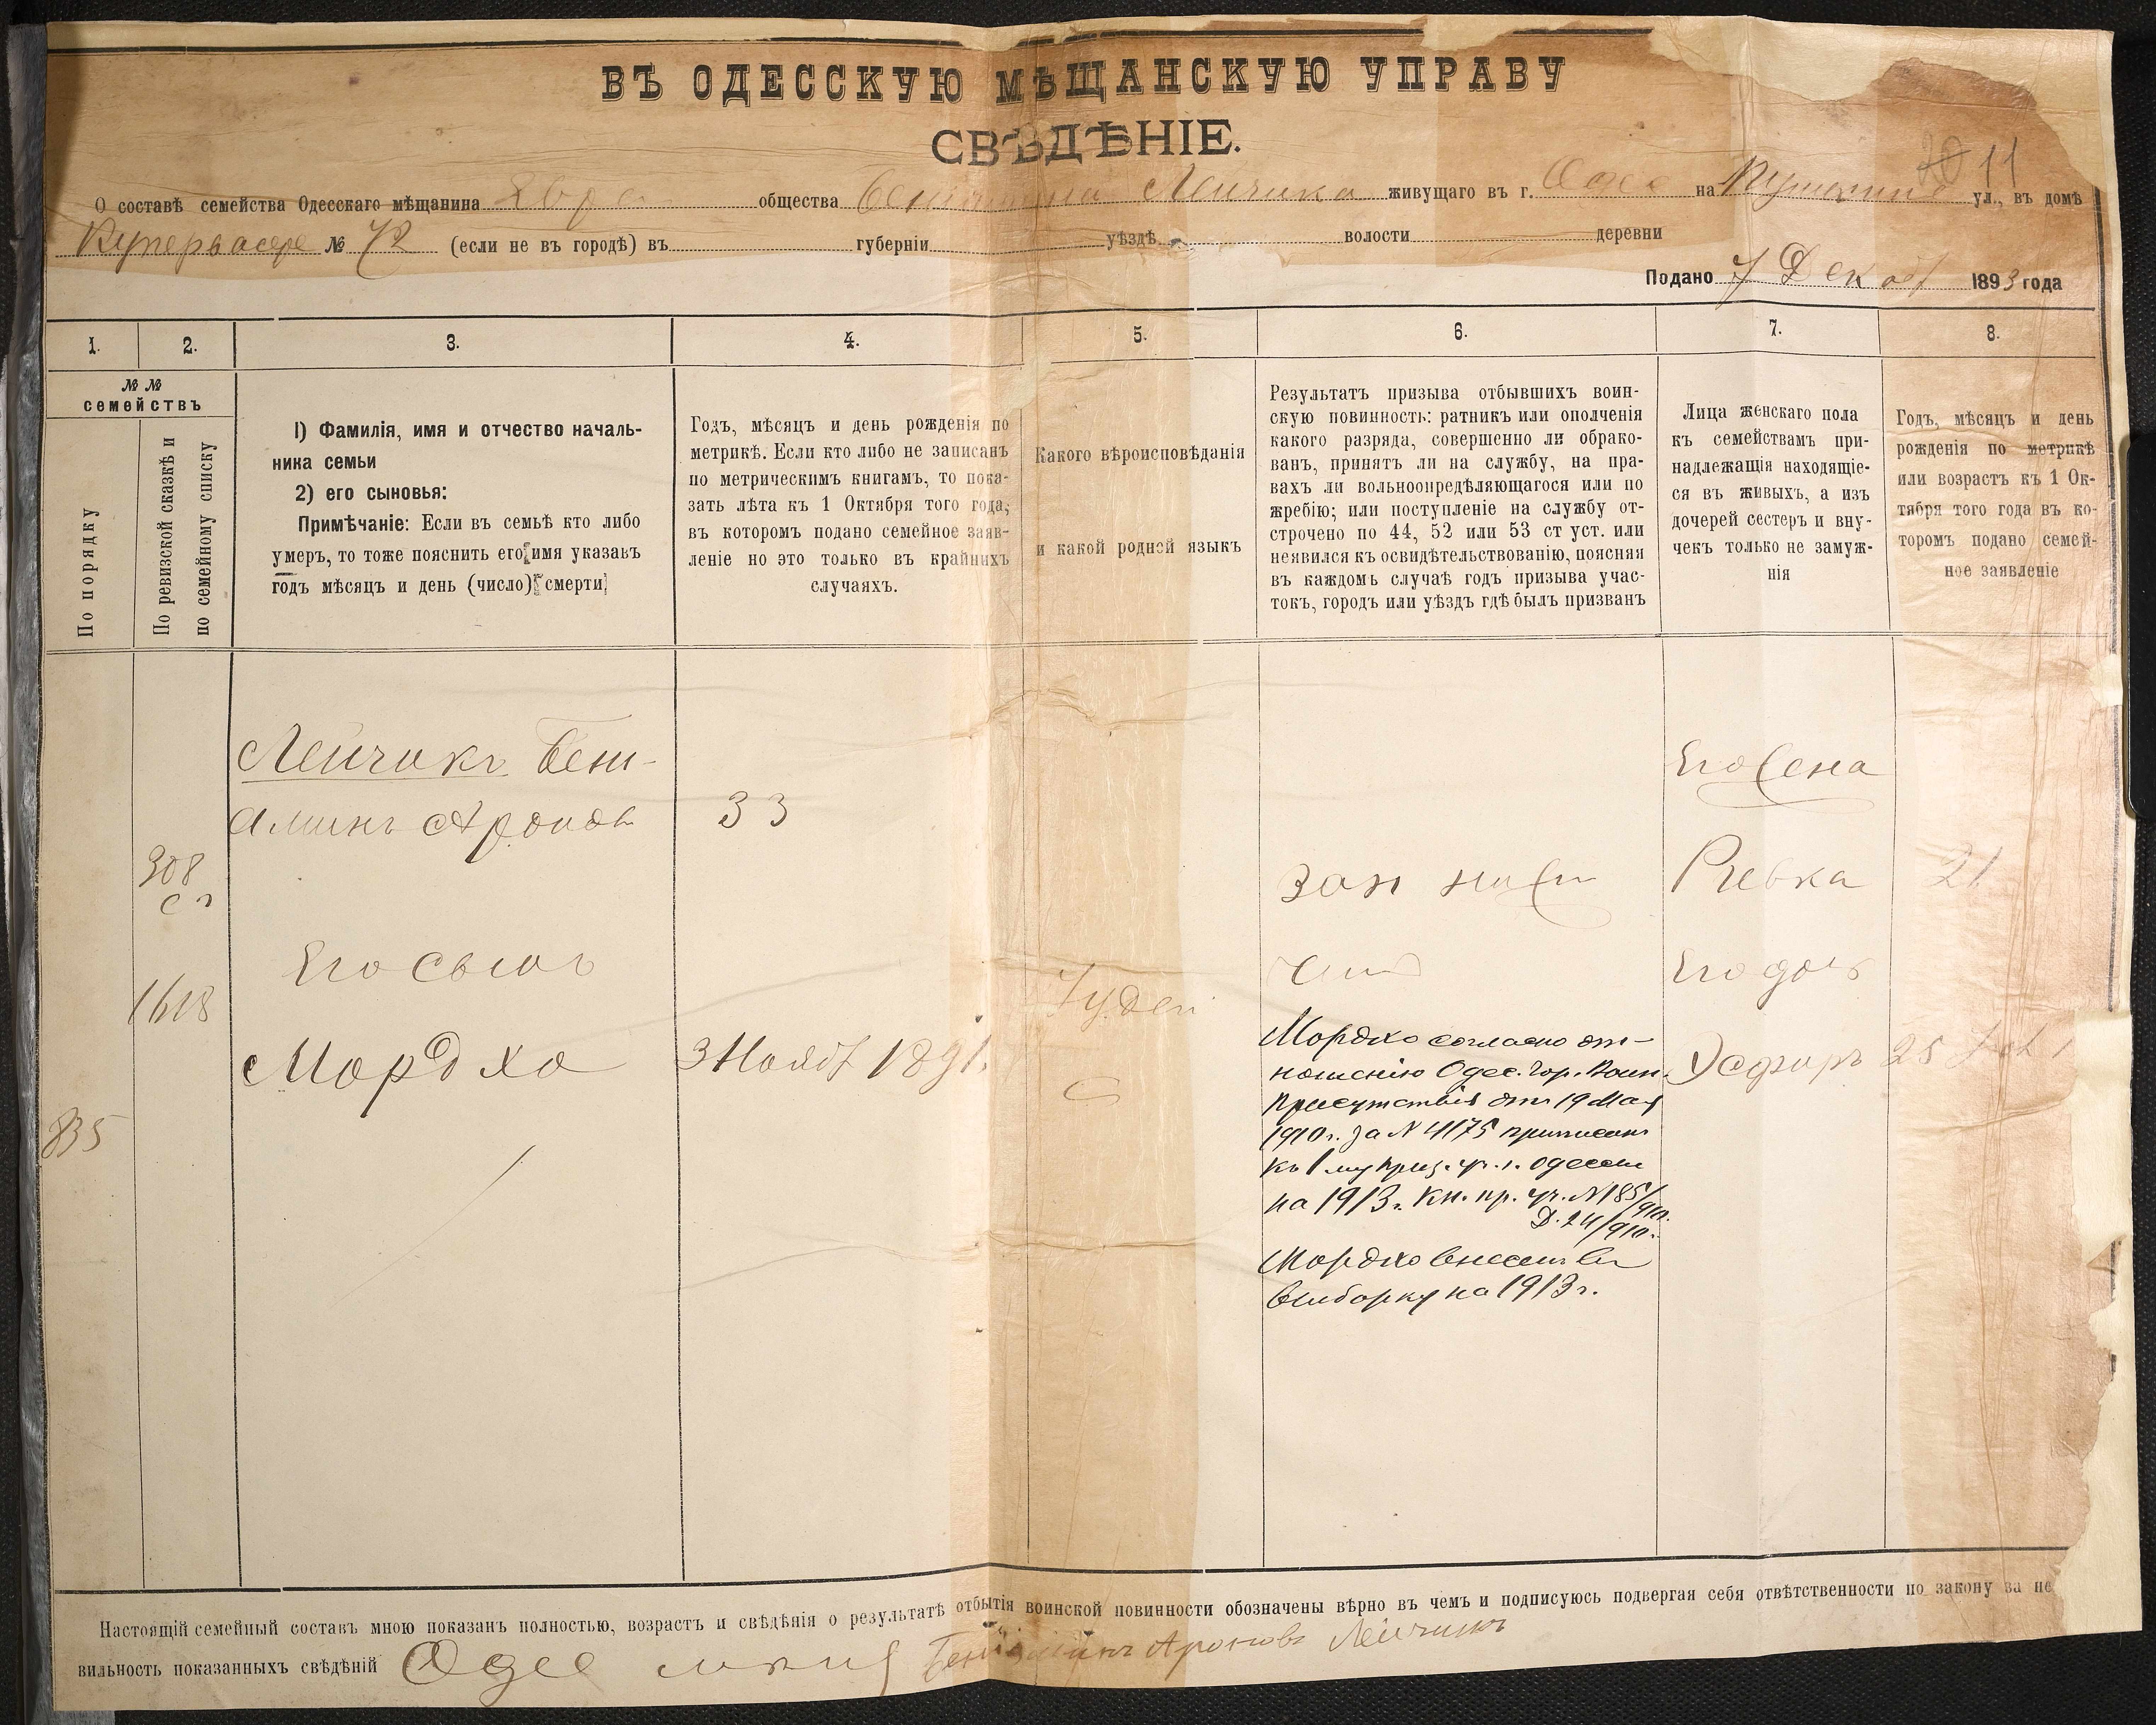 ВЪ ОДЕССКУЮ МѢЩАНСКУЮ УПРАВУ
СВѢДѢНІЕ.
20 11
О составѣ семейства Одесскаго мѣщанина Евре общества Лейчика живущаго въ г. Одес на ул., въ домѣ
№ 72 (если не въ городѣ) въ губерніи уѣздѣ волости деревни
Подано 7 Декаб 1893 года
1. 2. 3. 4. 5. 6. 7. 8.
№ №
семействъ
По порядку
По ревизской сказкѣ и
по семейному списку
1) Фамилія, имя и отчество началь-
ника семьи
2) его сыновья:
Примѣчаніе: Если въ семьѣ кто либо
умеръ, то тоже пояснить его имя указавъ
годъ мѣсяцъ и день (число) смерти
Годъ, мѣсяцъ и день рожденія по
метрикѣ. Если кто либо не записанъ
по метрическимъ книгамъ, то пока-
зать лѣта къ 1 Октября того года,
въ которомъ подано семейное заяв-
леніе но это только въ крайнихъ
случаяхъ.
Какого вѣроисповѣданія
и какой родной языкъ
Результатъ призыва отбывшихъ воин-
скую повинность: ратникъ или ополченія
какого разряда, совершенно ли обрако-
ванъ, принятъ ли на службу, на пра-
вахъ ли вольноопредѣляющагося или по
жребію; или поступленіе на службу от-
строчено по 44, 52 или 53 ст уст. или
неявился къ освидѣтельствованію, поясняя
въ каждомъ случаѣ годъ призыва учас-
токъ, городъ или уѣздъ гдѣ былъ призванъ
Лица женскаго пола
къ семействамъ при-
надлежащія находящіе-
ся въ живыхъ, а изъ
дочерей сестеръ и вну-
чекъ только не замуж-
нія
Годъ, мѣсяцъ и день
рожденія по метрикѣ
или возрастъ къ 1 Ок-
тября того года въ ко-
торомъ подано семей-
ное заявленіе
Лейчикъ Бені-
аминъ Аронов
33
308
1618
835
Его сынъ
Мордхо
3 Нояб 1891.
Іудей
Мордко согласно от-
ношенію Одес. Гор. Воин.
Присутствія отъ 19 Мая
1910 г. за N 4175 приписанъ
къ 1 му приз. уч. г. Одессы
на 1913 г. Кн. пр. уч. N 185/910.
Д. 24/910.
Мордко внесенъ въ
выборку на 1913 г.
Его жена
Ревка
21
Его дочь
Эсфирь
25
Настоящій семейный составъ мною показанъ полностью, возрастъ и свѣдѣнія о результатѣ отбытія воинской повинности обозначены вѣрно въ чемъ и подписуюсь подвергая себя отвѣтственности по закону за не
вильность показанныхъ свѣдѣній Одес Беніаминъ Ароновъ Лейчикъ